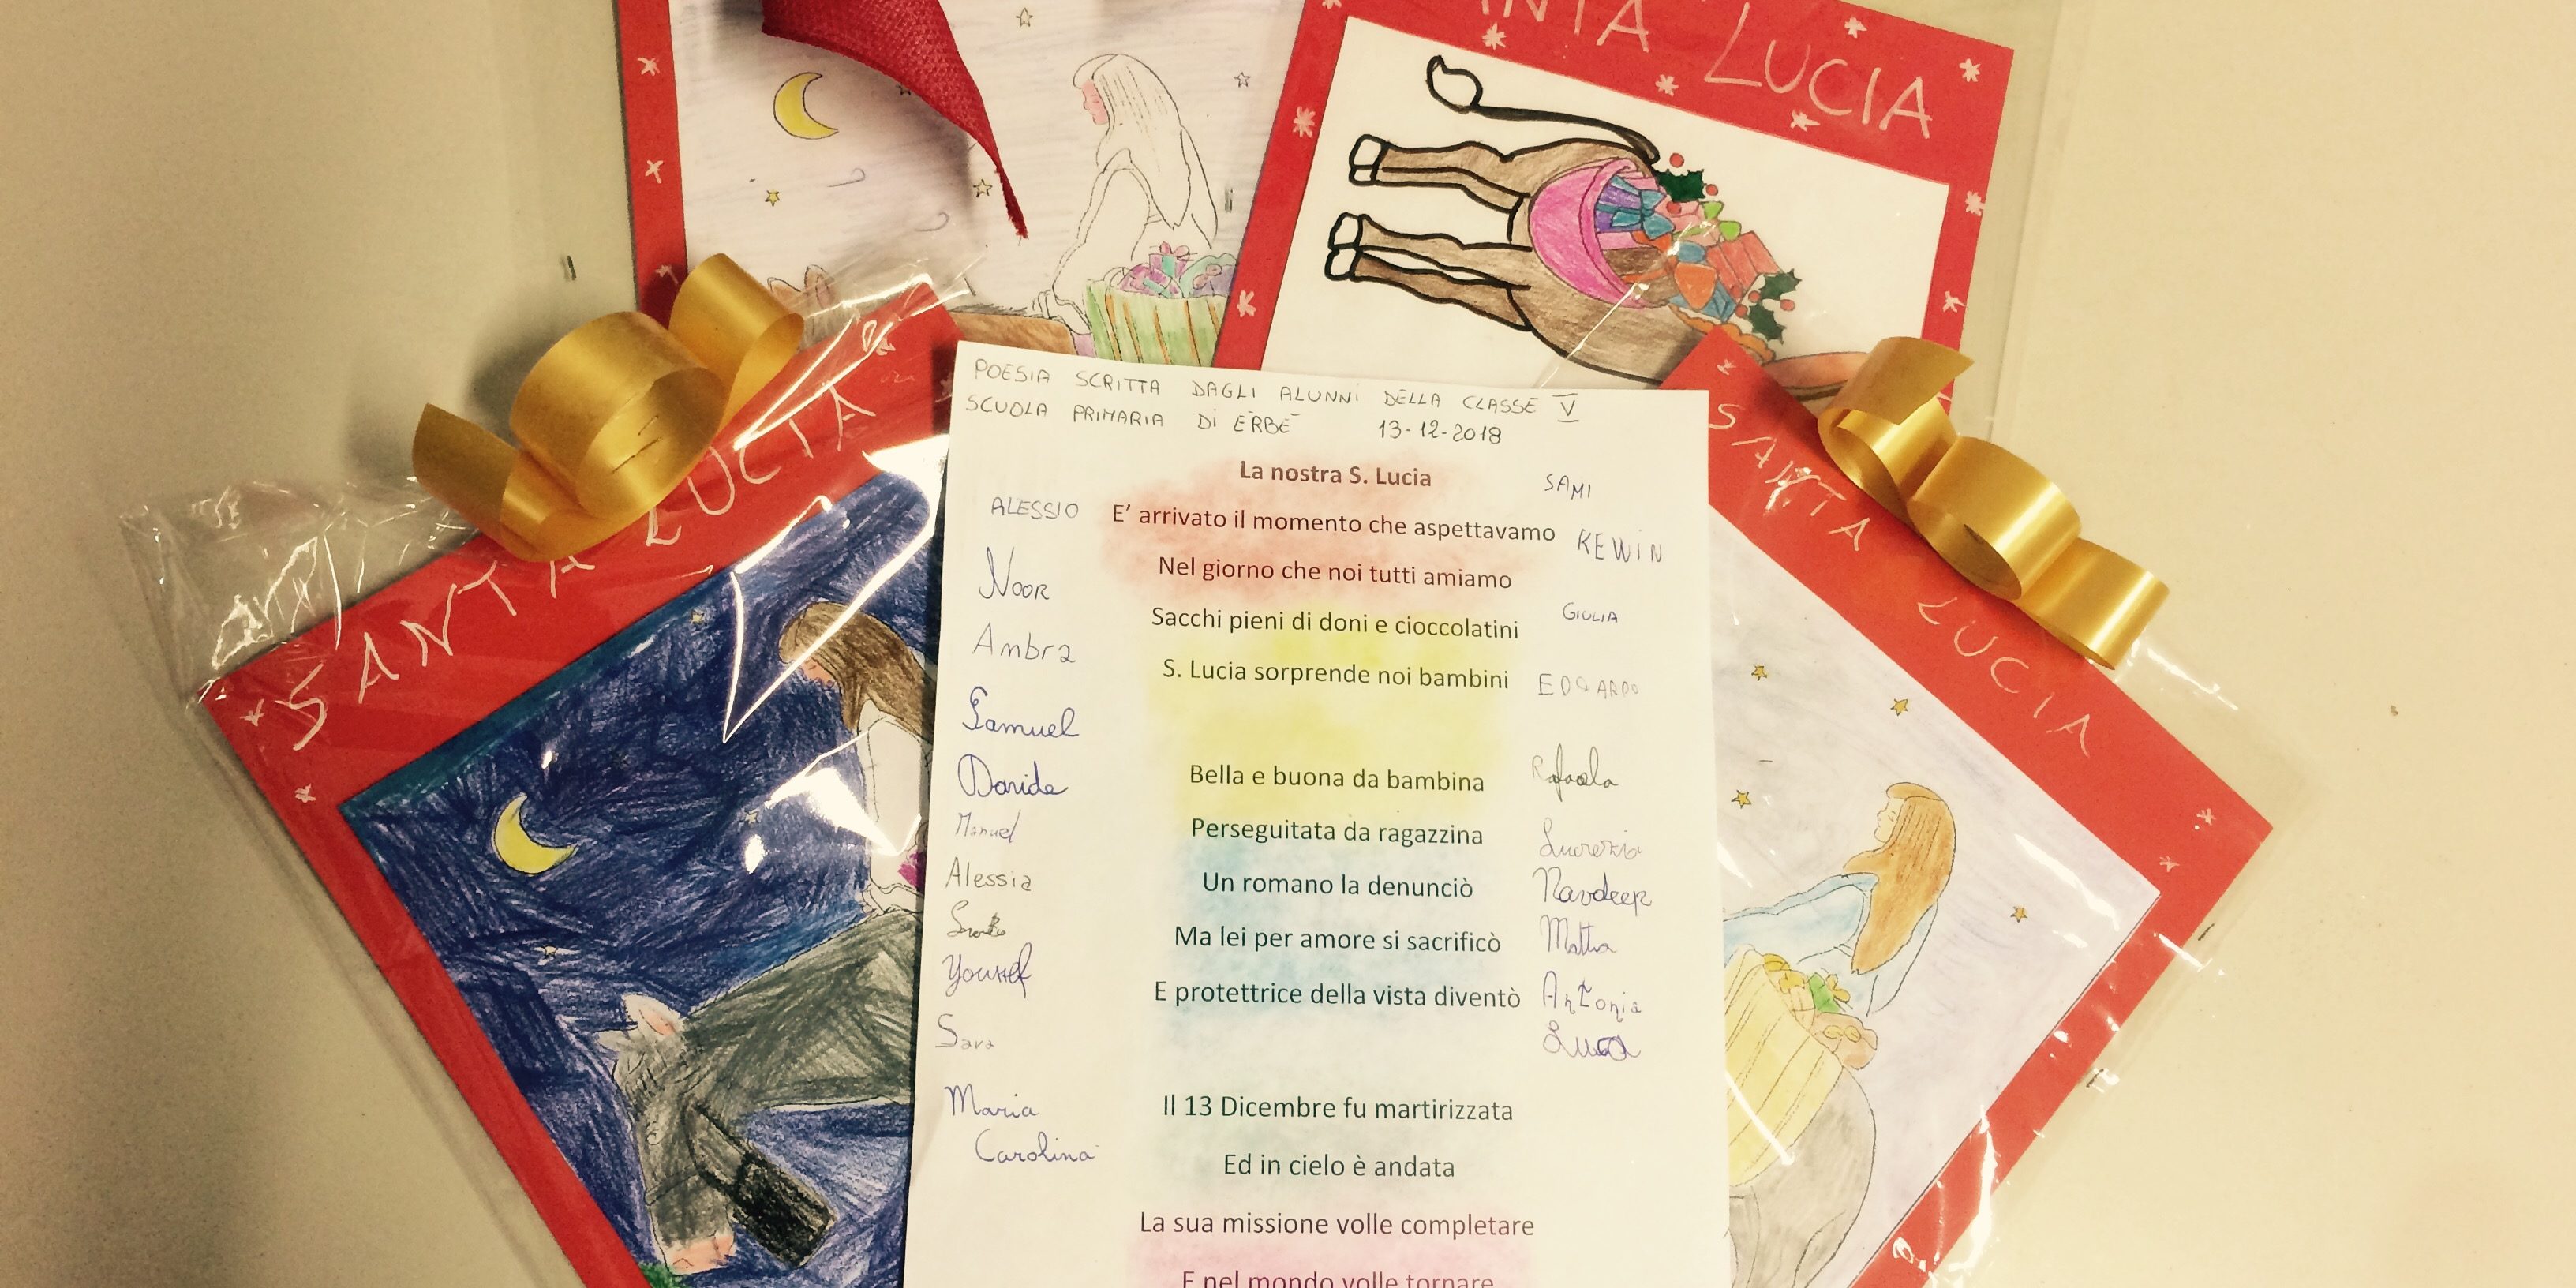 SANTA LUCIA
POESIA SCRITTA DAGLI ALUNNI DELLA CLASSE V
SCUOLA PRIMARIA DI ERBÈ 13-12-2018
La nostra S. Lucia
E' arrivato il momento che aspettavamo
Nel giorno che noi tutti amiamo
Sacchi pieni di doni e cioccolatini
S. Lucia sorprende noi bambini
Bella e buona da bambina
Perseguitata da ragazzina
Un romano la denunciò
Ma lei per amore si sacrificò
E protettrice della vista diventò
Il 13 Dicembre fu martirizzata
Ed in cielo è andata
La sua missione volle completare
E nel mondo volle tornare
ALESSIO
Noor
Ambra
Samuel
Davide
Manuel
Alessia
Yousef
Sara
Maria
Carolina
SAMI
KEWIN
GIULIA
EDOARDO
Rafaela
Lucrezia
Navdeep
Mattia
Antonia
Luca
SANTA LUCIA
SANTA LUCIA